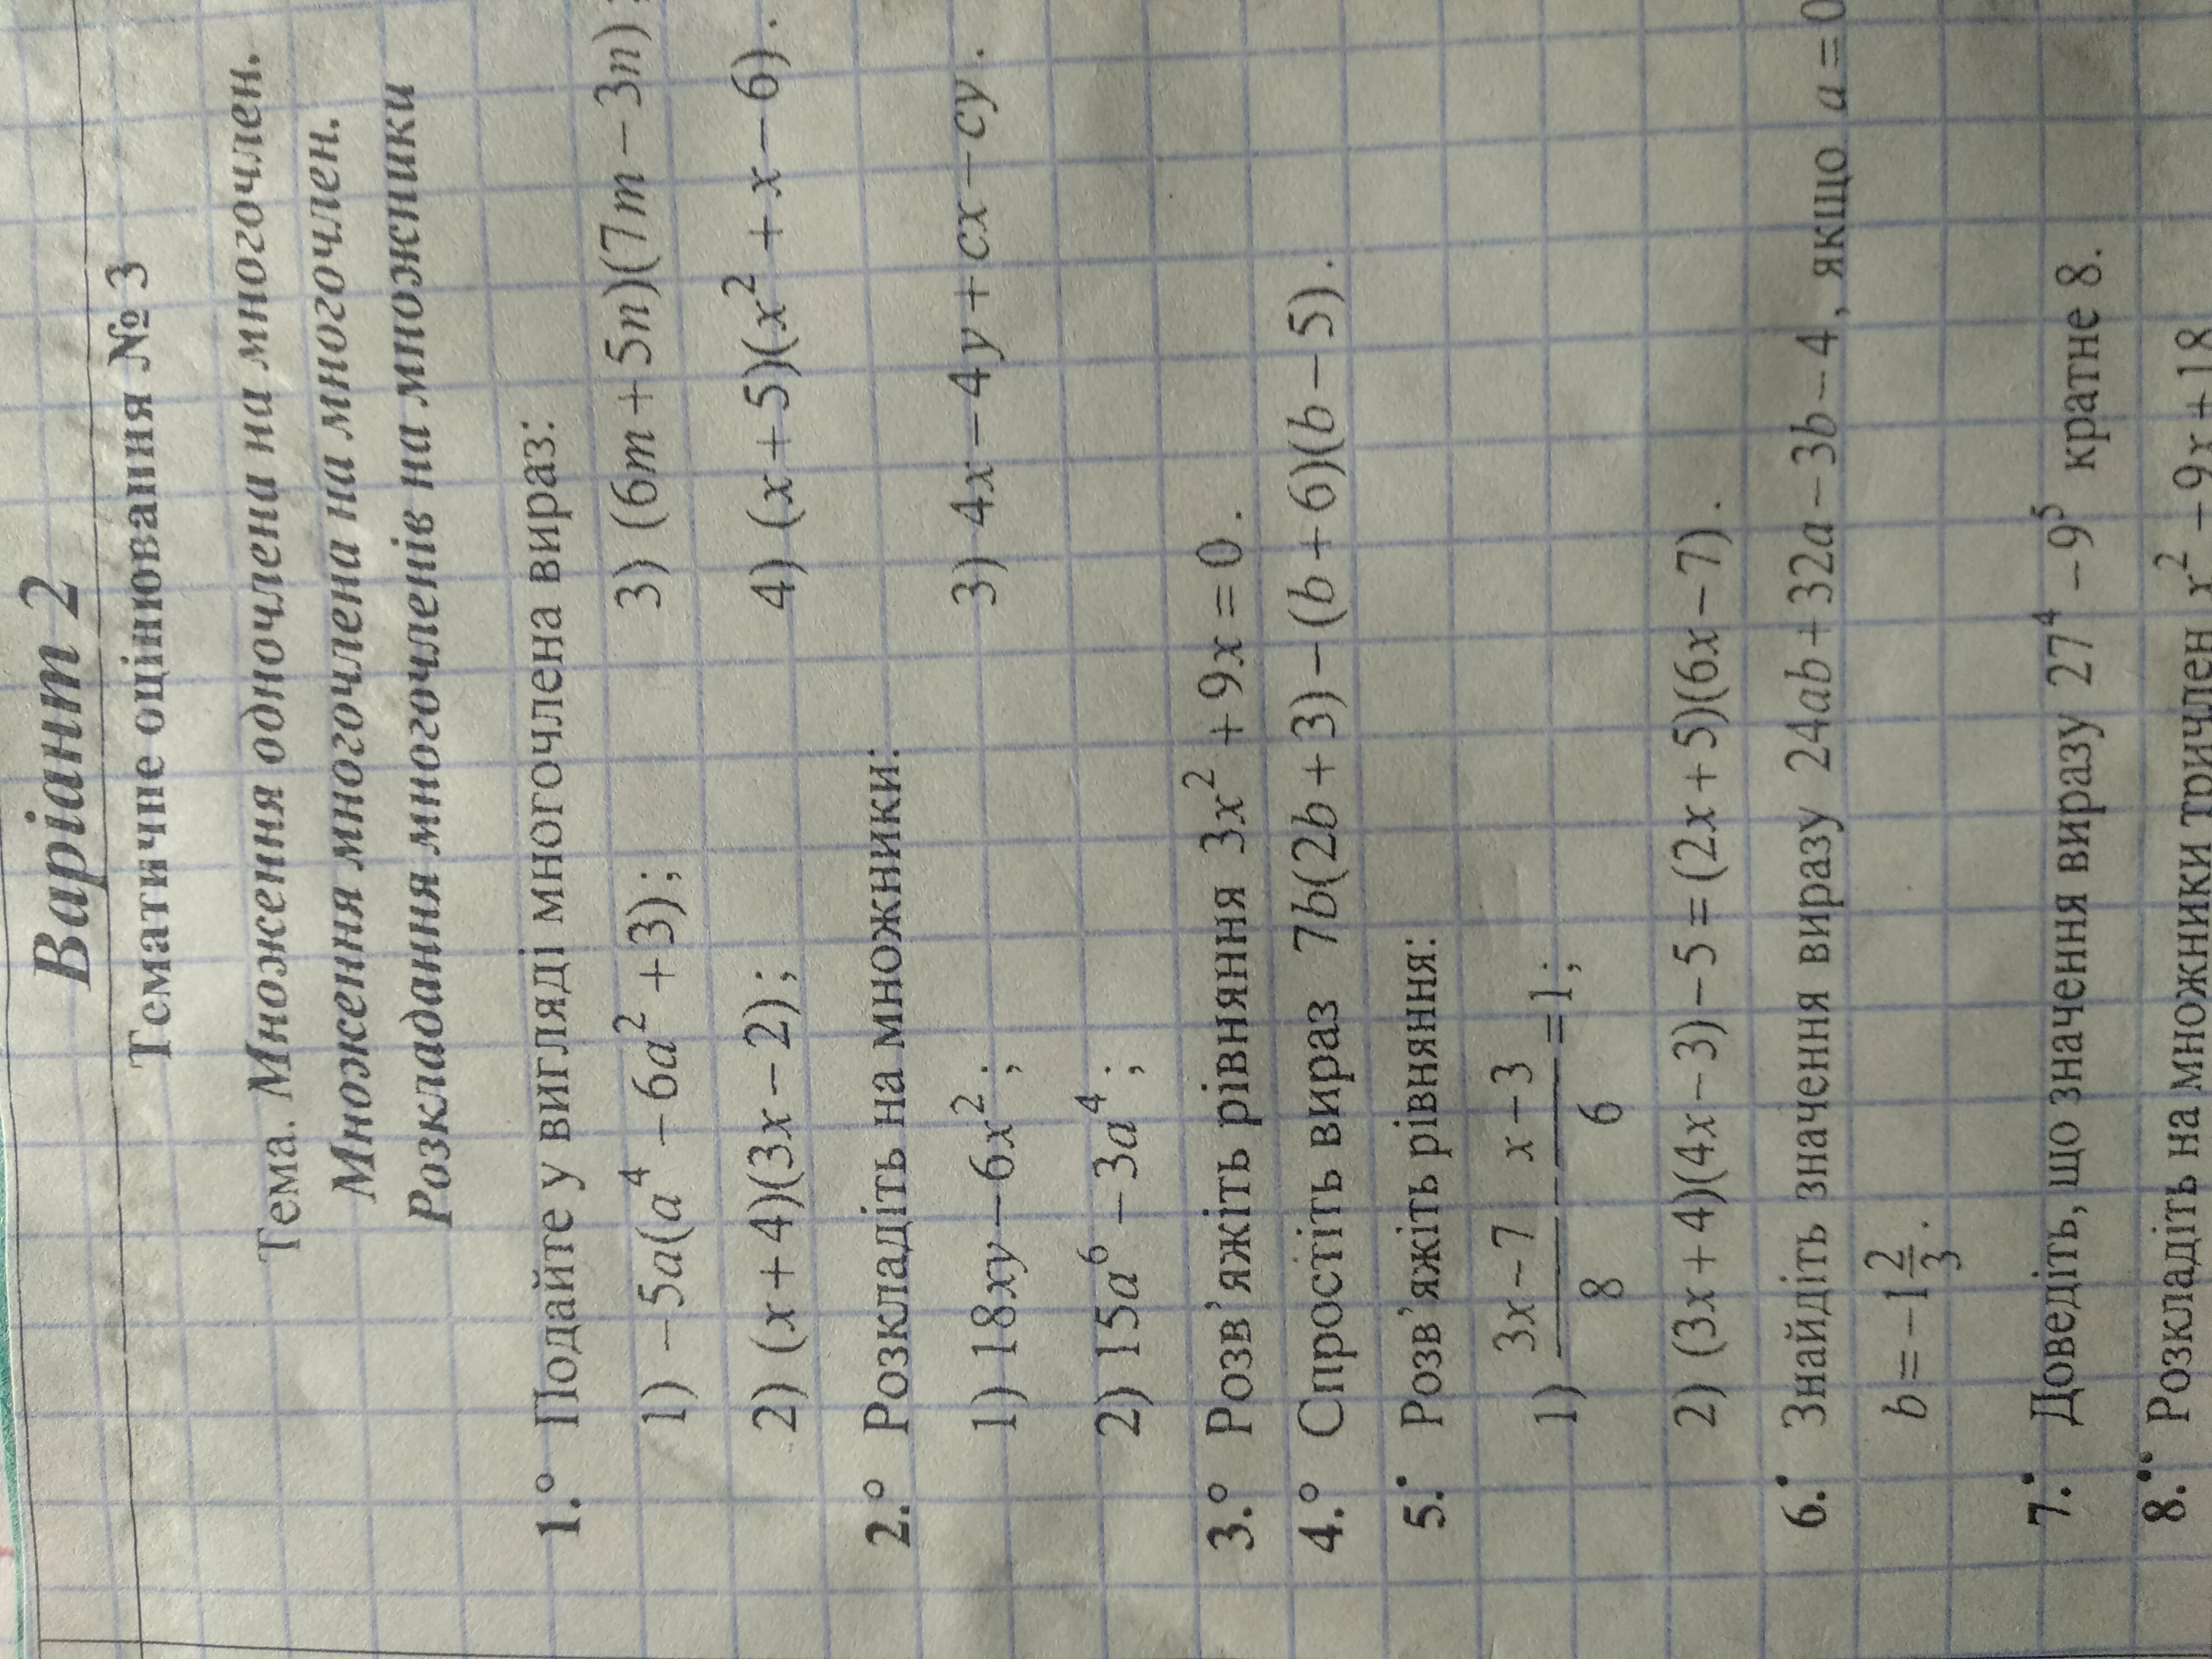 Варіант 2
Тематичне оцінювання № 3
Тема. Множення одночлена на многочлен.
Множення многочлена на многочлен.
Розкладання многочленів на множники
1.° Подайте у вигляді многочлена вираз:
1) −5a(a⁴ − 6a² + 3); 3) (6m + 5n)(7m − 3n);
2) (x + 4)(3x − 2); 4) (x + 5)(x² + x − 6).
2.° Розкладіть на множники:
1) 18xy − 6x²; 3) 4x − 4y + cx − cy.
2) 15a⁶ − 3a⁴;
3.° Розв’яжіть рівняння 3x² + 9x = 0.
4.° Спростіть вираз 7b(2b + 3) − (b + 6)(b − 5).
5.• Розв’яжіть рівняння:
1) (3x − 7)/8 − (x − 3)/6 = 1;
2) (3x + 4)(4x − 3) − 5 = (2x + 5)(6x − 7).
6.• Знайдіть значення виразу 24ab + 32a − 3b − 4, якщо a = 0
b = −1 2/3.
7.• Доведіть, що значення виразу 27⁴ − 9⁵ кратне 8.
8.•• Розкладіть на множники тричлен x² − 9x + 18